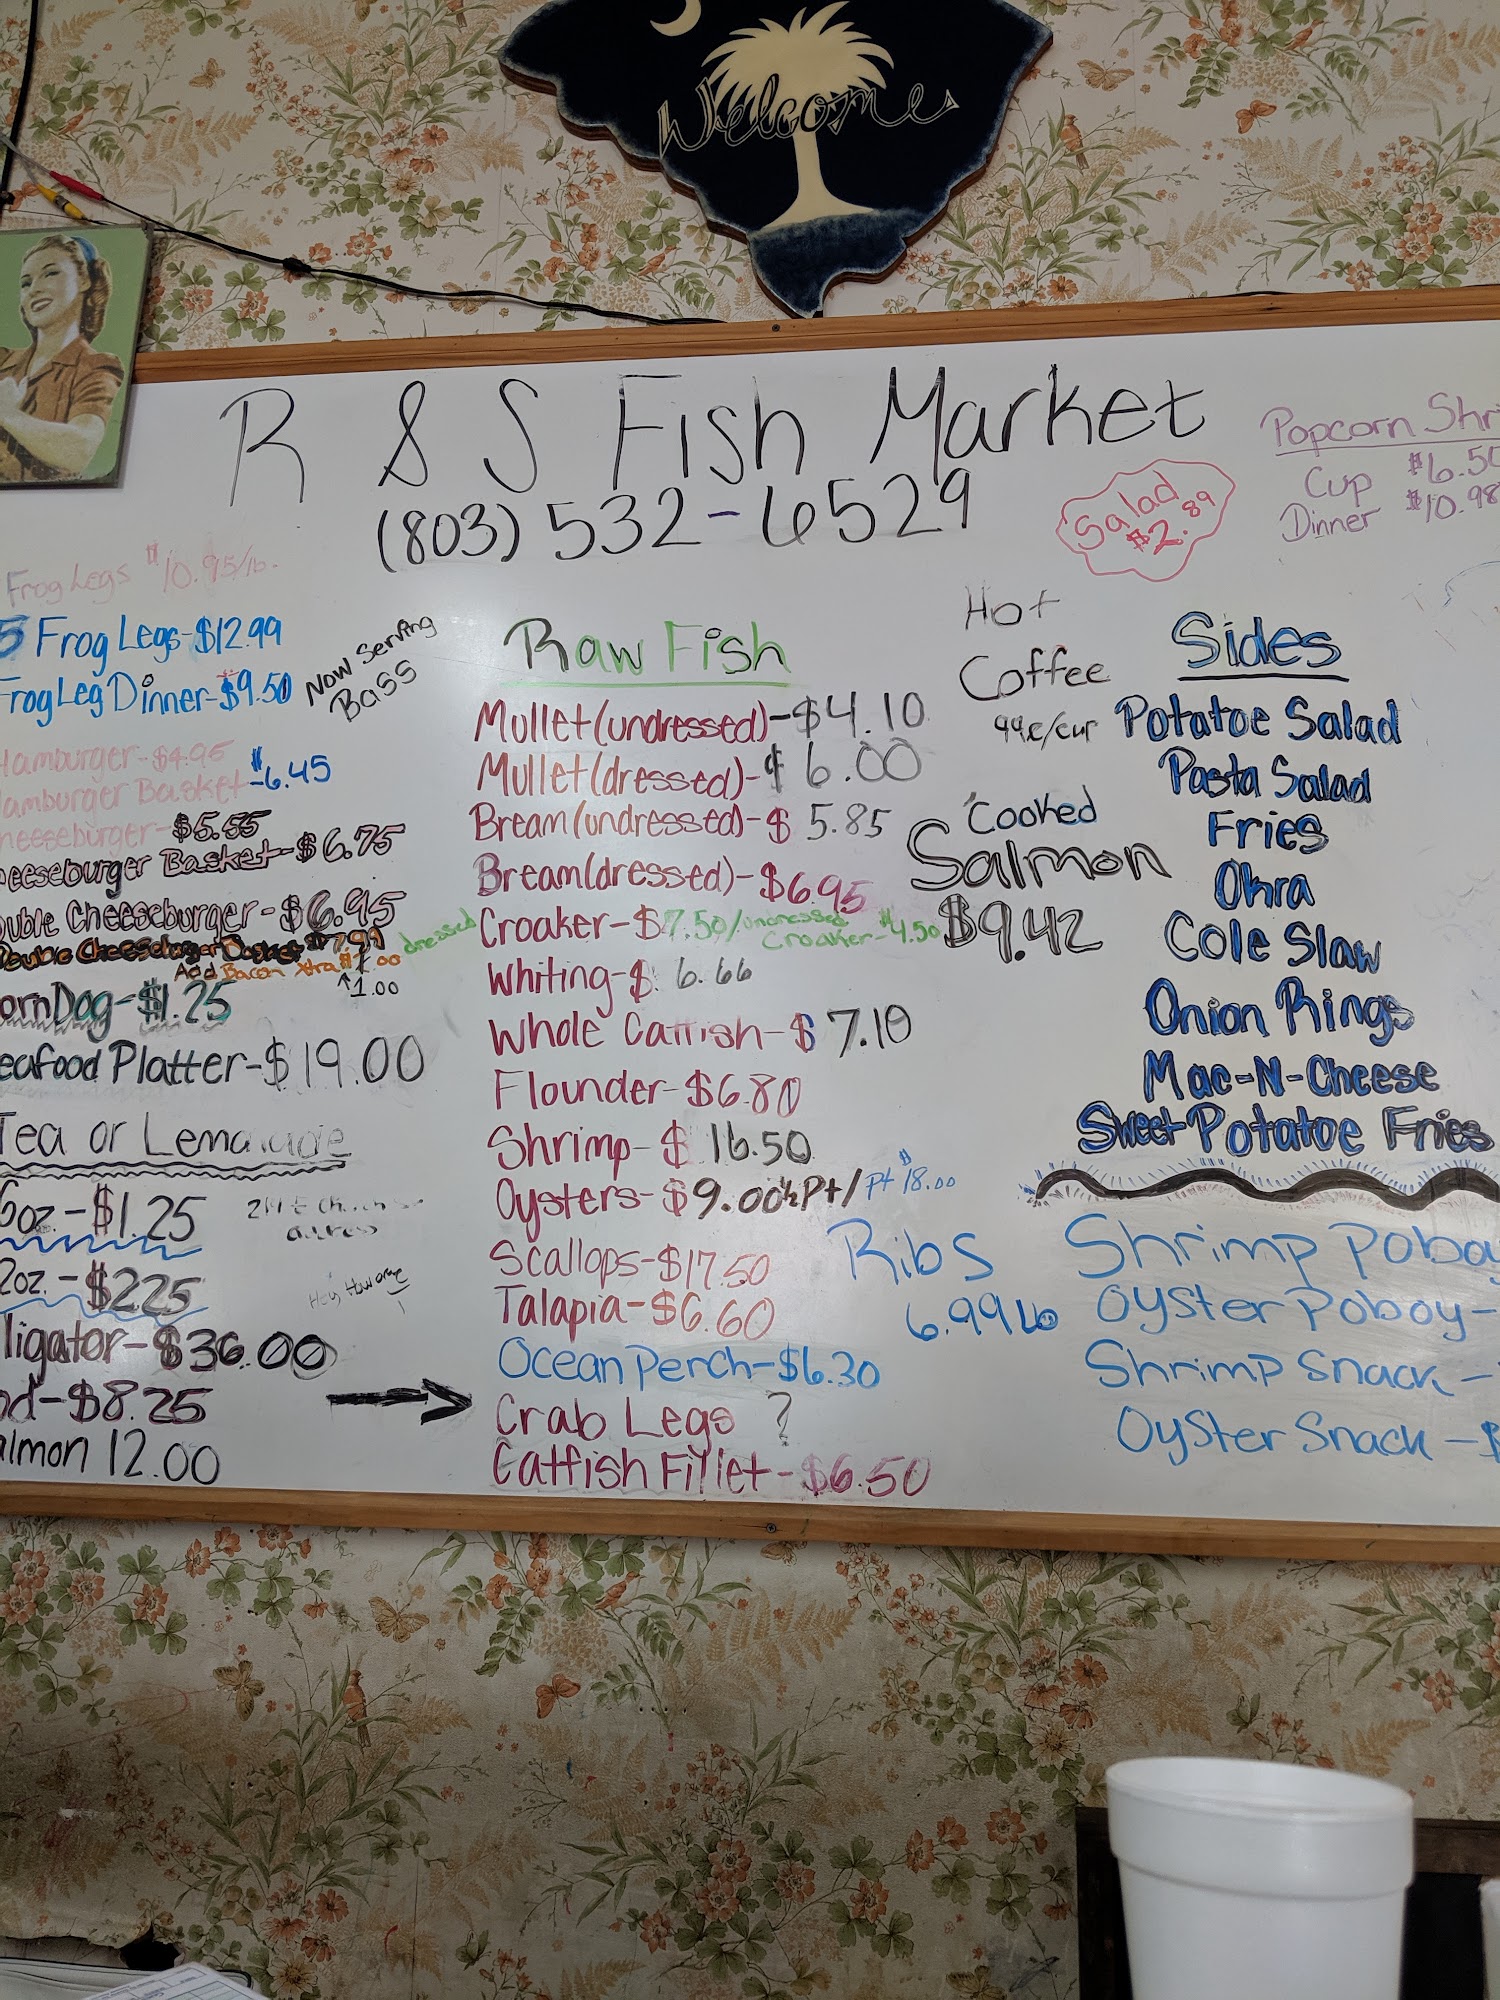 Welcome
R & S Fish Market
(803) 532-6529
Salad
$2.89
Popcorn Shri
Cup $6.50
Dinner $10.98
Frog Legs $10.95/lb.
5 Frog Legs-$12.99
Frog Leg Dinner-$9.50
Now Serving
Bass
Hamburger-$4.95
amburger Basket-$6.45
heeseburger-$5.55
heeseburger Basket-$6.75
ouble Cheeseburger-$6.95
Double Cheeseburger Basket $7.99
Add Bacon Xtra $1.00
↑1.00
ornDog-$1.25
eafood Platter-$19.00
Tea or Lemonade
6oz.-$1.25
2oz.-$2.25
lligator-$36.00
od-$8.25
almon 12.00
Raw Fish
Mullet(undressed)-$4.10
Mullet(dressed)-$6.00
Bream(undressed)-$5.85
Bream(dressed)-$6.95
dressed Croaker-$7.50/undressed
Croaker-$4.50
Whiting-$6.66
Whole Catfish-$7.10
Flounder-$6.80
Shrimp-$16.50
Oysters-$9.00½Pt/Pt $18.00
Scallops-$17.50
Talapia-$6.60
Ocean Perch-$6.30
→ Crab Legs ?
Catfish Fillet-$6.50
Hot
Coffee
99¢/cup
Cooked
Salmon
$9.42
Ribs
6.99 Lb
Sides
Potatoe Salad
Pasta Salad
Fries
Okra
Cole Slaw
Onion Rings
Mac-N-Cheese
Sweet Potatoe Fries
Shrimp Poboy
Oyster Poboy-
Shrimp Snack-
Oyster Snack-$